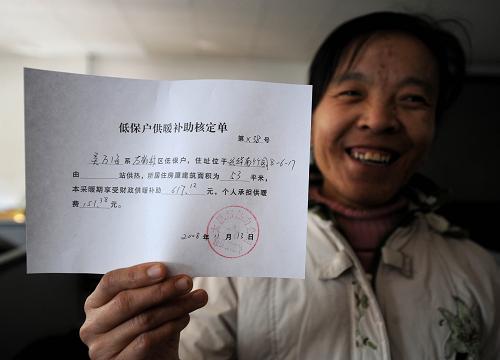 低保户供暖补助核定单
第 x38 号
系 区低保户，住址位于 8-6-17
由 站供热，所居住房屋建筑面积为 53 平米，
本采暖期享受财政供暖补助 617.12 元。个人承担供暖
费 151.38 元。
2008 年 11 月 13 日